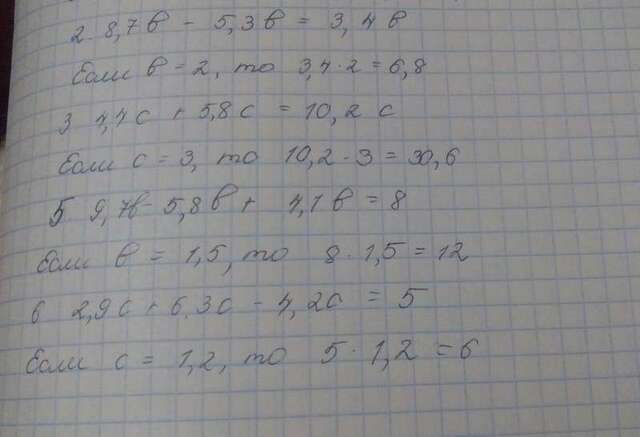 2. 8,7в - 5,3в = 3,4в
Если в = 2, то 3,4 · 2 = 6,8
3 4,4с + 5,8с = 10,2 с
Если с = 3, то 10,2 · 3 = 30,6
5 9,7в - 5,8в + 4,1в = 8
Если в = 1,5, то 8 · 1,5 = 12
6 2,9с + 6,3с - 4,2с = 5
Если с = 1,2, то 5 · 1,2 = 6